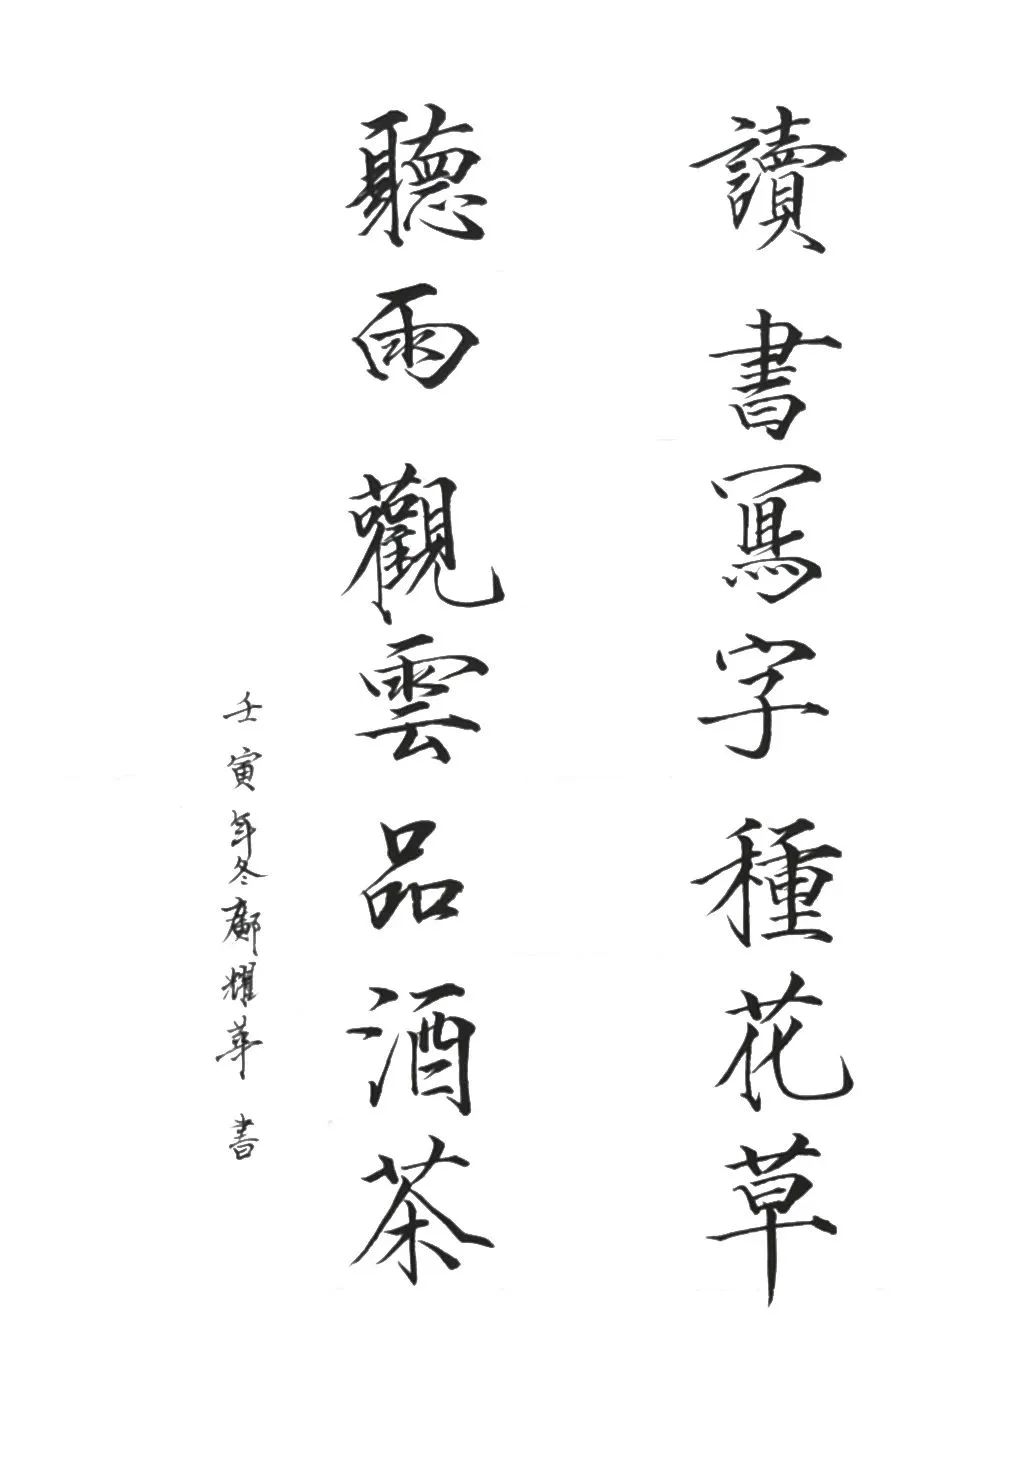 讀書寫字種花草
聽雨觀雲品酒茶
壬寅年冬鄺耀華書